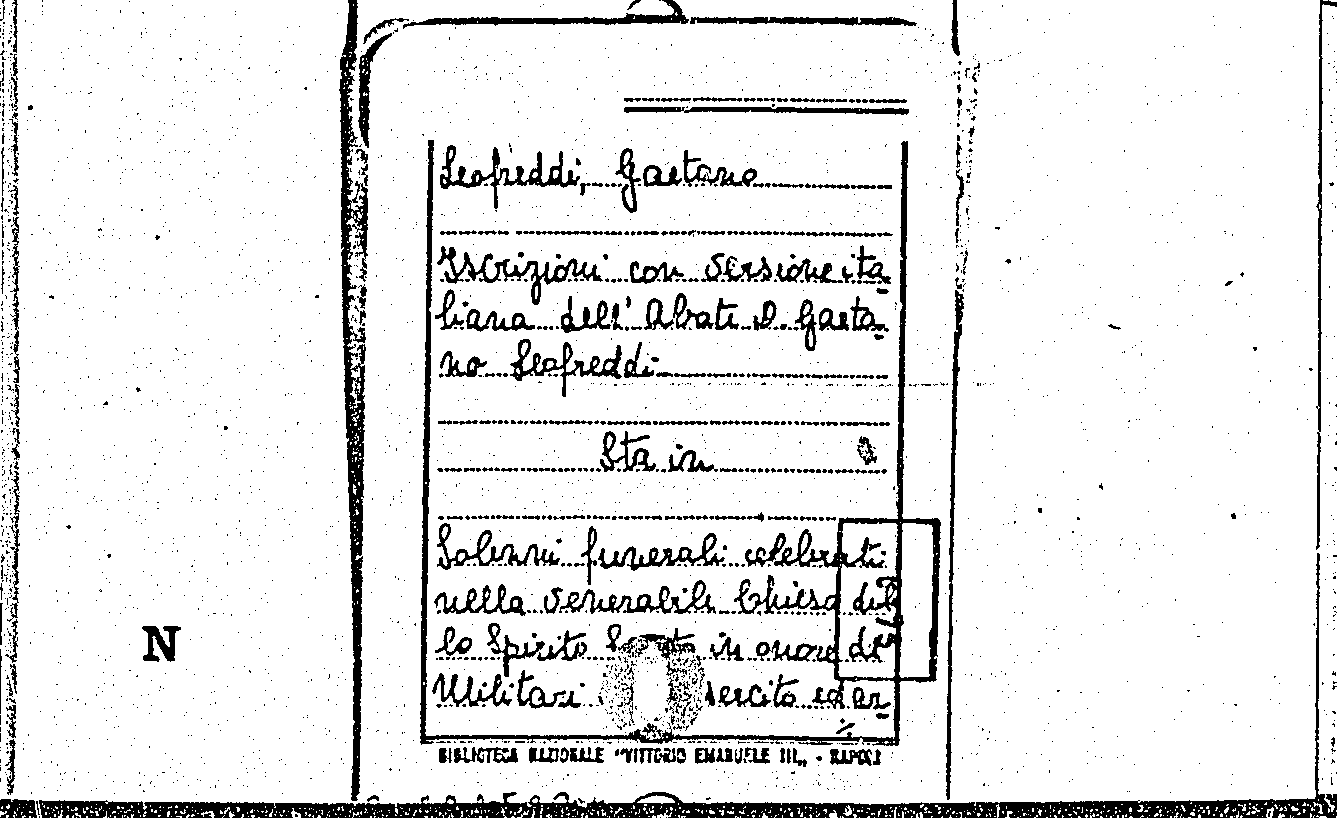 Scofreddi, Gaetano
Iscrizioni con versione ita_
liana dell'Abate D. Gaeta_
no Scofreddi
Sta in
Solenni funerali celebrati
nella venerabile Chiesa del
lo Spirito Santo in onore de
Militari esercito ed ar_
BIBLIOTECA NAZIONALE "VITTORIO EMANUELE III„ - NAPOLI
N